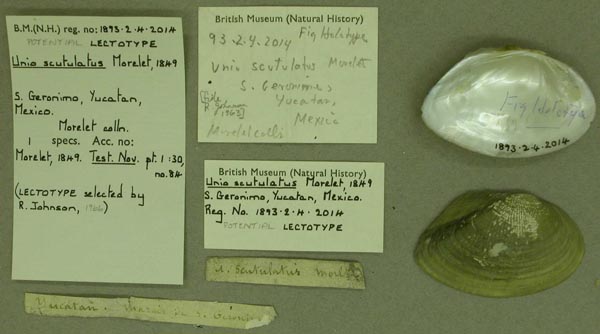 B.M.(N.H.) reg. no: 1893·2·4·2014
POTENTIAL LECTOTYPE
Unio scutulatus Morelet, 1849
S. Geronimo, Yucatan,
Mexico.
Morelet colln.
1 specs. Acc. no:
Morelet, 1849. Test. Nov. pt. 1:30,
no. 84
(LECTOTYPE selected by
R. Johnson,
British Museum (Natural History)
93·2·4·2014 Fig Holotype
Unio scutulatus Morelet
S. Geronimo,
Yucatan,
Mexico
Morelet colln
British Museum (Natural History)
Unio scutulatus Morelet, 1849
S. Geronimo, Yucatan, Mexico.
Reg. No. 1893·2·4·2014
POTENTIAL LECTOTYPE
U. scutulatus Morl
Yucatan.
Fig Holotype
1893·2·4·2014